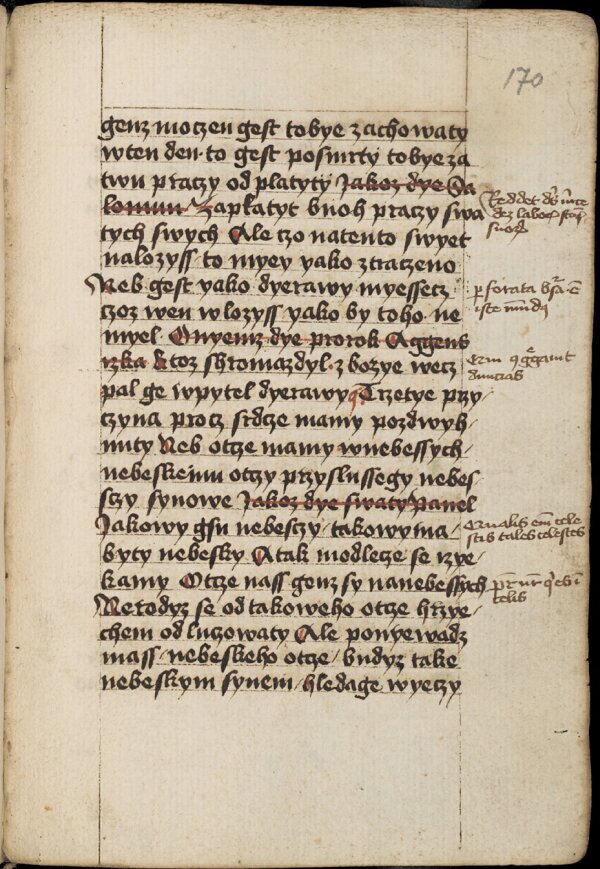 170
genz moczen gest tobye zachowaty
wten den · to gest posmrty tobye za
twu praczy od platyty Jakoz dye Sa
lomun Zaplatyt buoh praczy swa
tych swych Ale czo natento swyet
nalozyss to myey yako ztraczeno
Neb gest yako dyerawy myessecz
czoz wen wlozyss yako by toho ne
myel Onyemz dye prorok Aggeus
rzka Ktoz shromazdyl z bozye wecz
pal ge wpytel dyerawy Trzetye przy
czyna procz srdze mamy pozdwyh
nuty Neb otcze mamy wnebessych
nebeskemu otczy przyslussegy nebes
sczy synowe Jakoz dye swaty Pawel
Jakowy gsu nebesczy / takowy ma
byty nebesky Atak modlecze se rzye
kamy Otcze nass genz sy nanebessych
Nerodyz se od takoweho otcze hrzye
chem odluczowaty Ale ponyewadz
mass nebeskeho otcze / budyz take
nebeskym synem / hledage wyeczy
Reddet
perforata
iste
diuicias
Qualis
tales celestes
celis